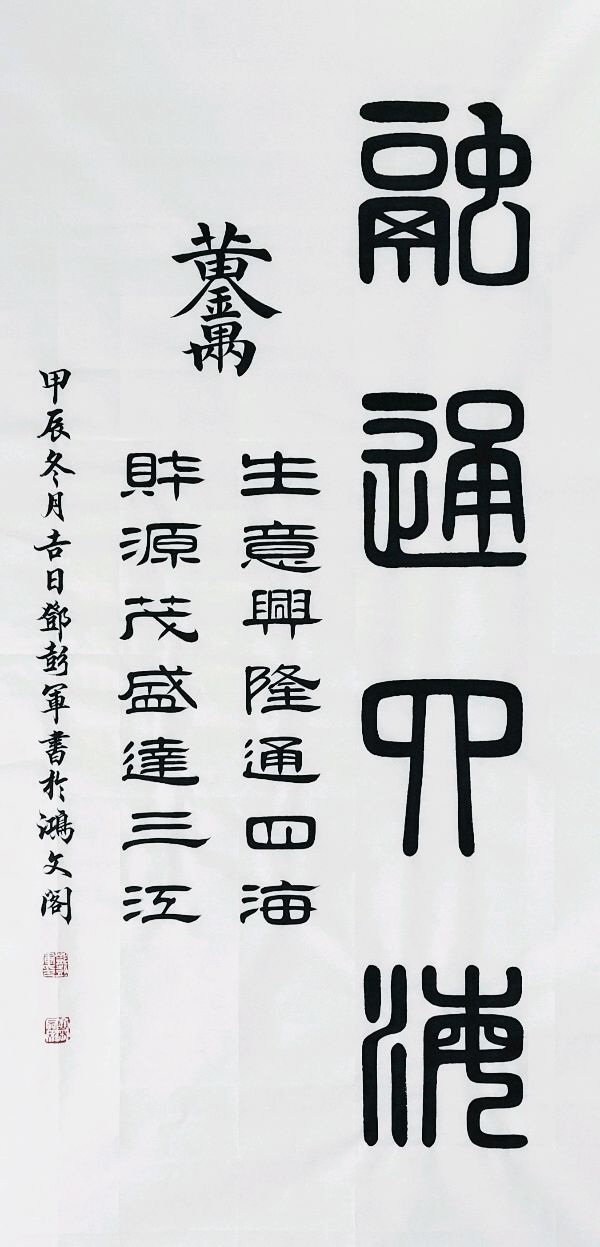 融通四海
黄金萬兩
生意興隆通四海
財源茂盛達三江
甲辰冬月吉日鄧彭軍書於鴻文閣